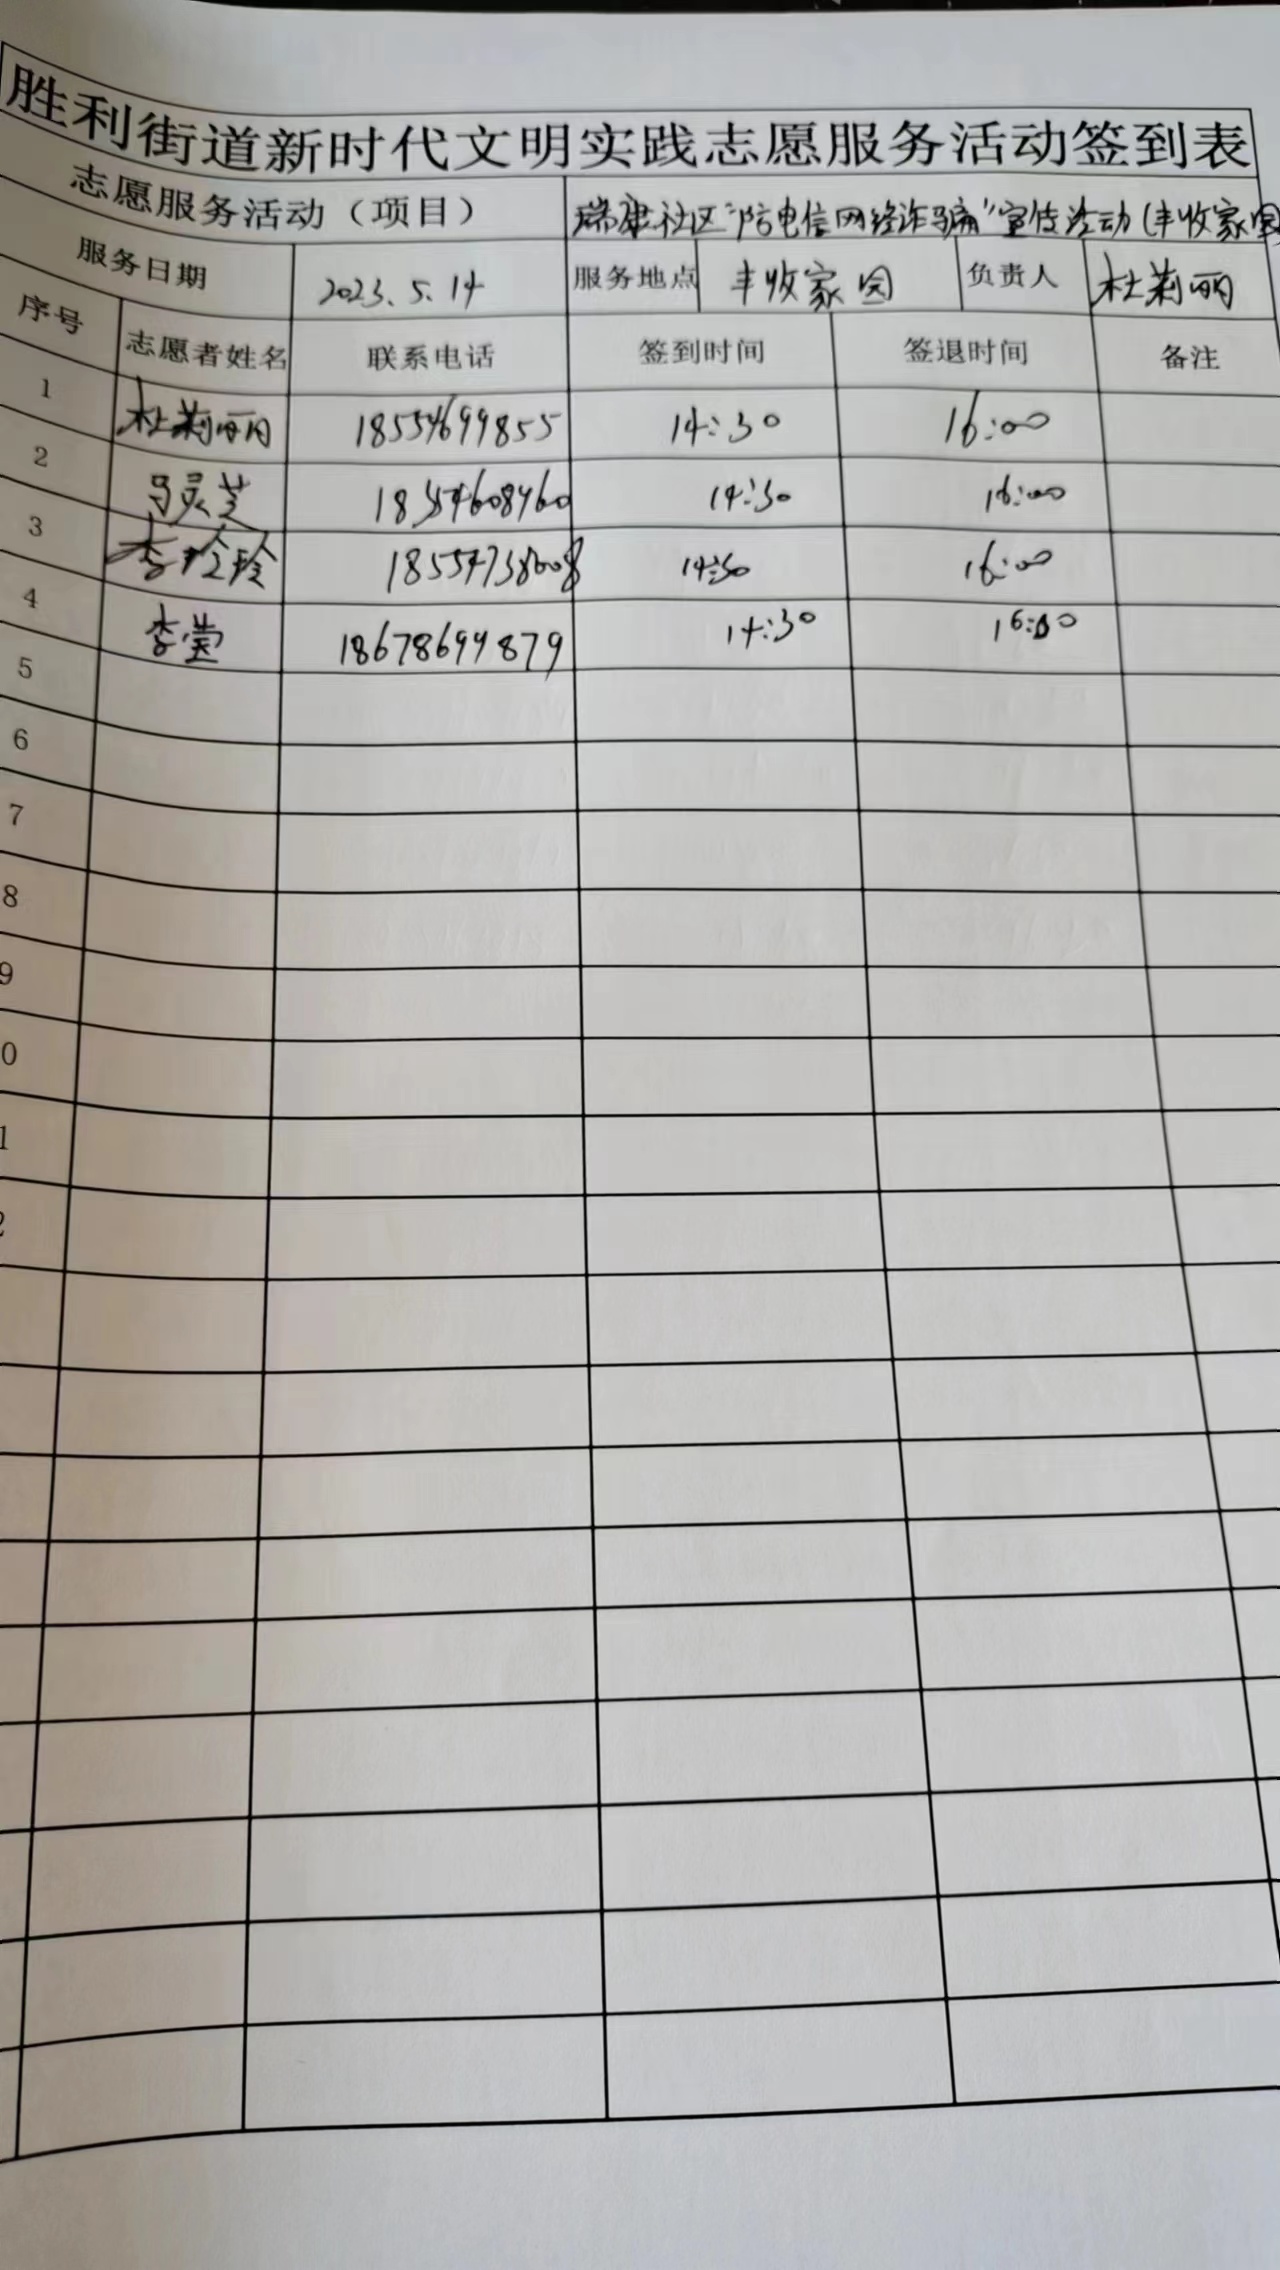 胜利街道新时代文明实践志愿服务活动签到表
志愿服务活动（项目） 瑞康社区“防电信网络诈骗”宣传活动（丰收家园
服务日期 2023.5.14 服务地点 丰收家园 负责人 杜莉丽
序号 志愿者姓名 联系电话 签到时间 签退时间 备注
1 杜莉丽 18554699855 14:30 16:00
2 马灵芝 18354608460 14:30 16:00
3 李玲玲 18554738608 14:30 16:00
4 李莹 18678699879 14:30 16:00
5
6
7
8
9
0
1
2